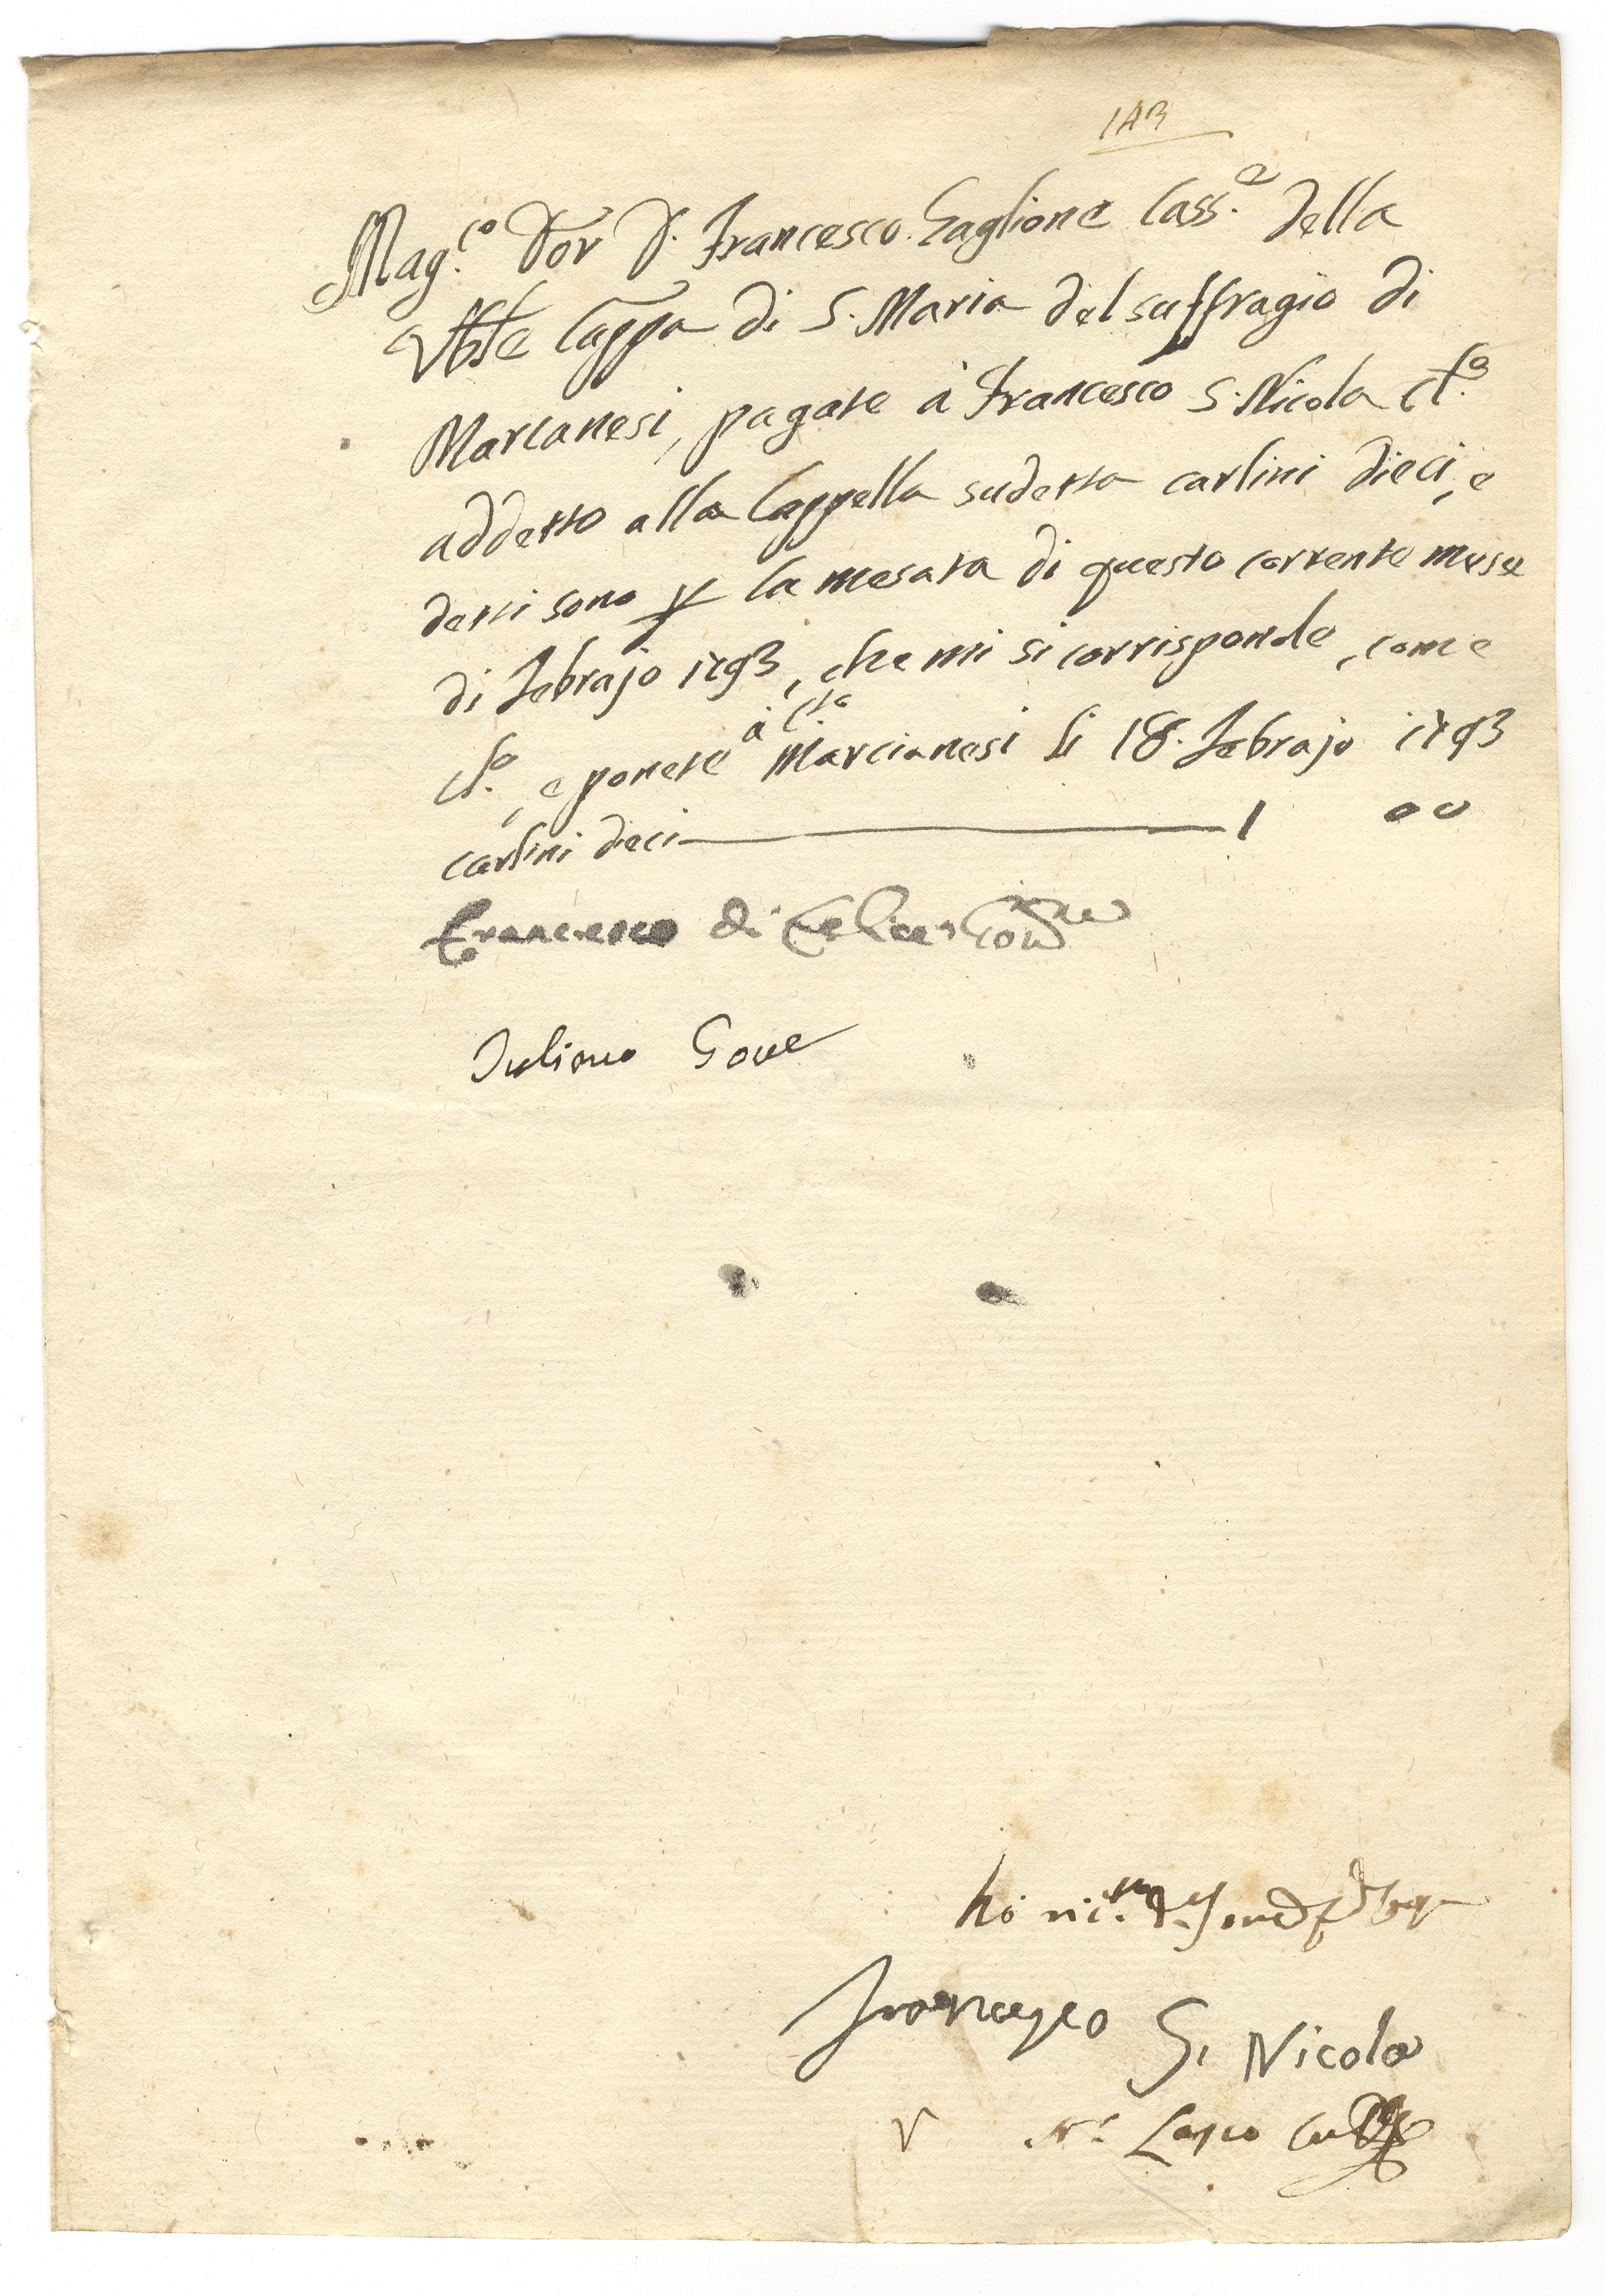 Mag.co Dor D. Francesco Gaglione Cass.e della
Cappa di S. Maria del suffragio di
Marcanesi, pagate à Francesco S. Nicola Ct.o
addetto alla Cappella sudetta carlini dieci, e
detti sono p la mesata di questo corrente mese
di Febrajo 1793, che mi si corrisponde, come
Ct.o, e ponete à Ct.a Marcianesi li 18. Febrajo 1793
carlini dieci 1 00
Francesco di Felice
Juliano
hò
Francesco S. Nicola